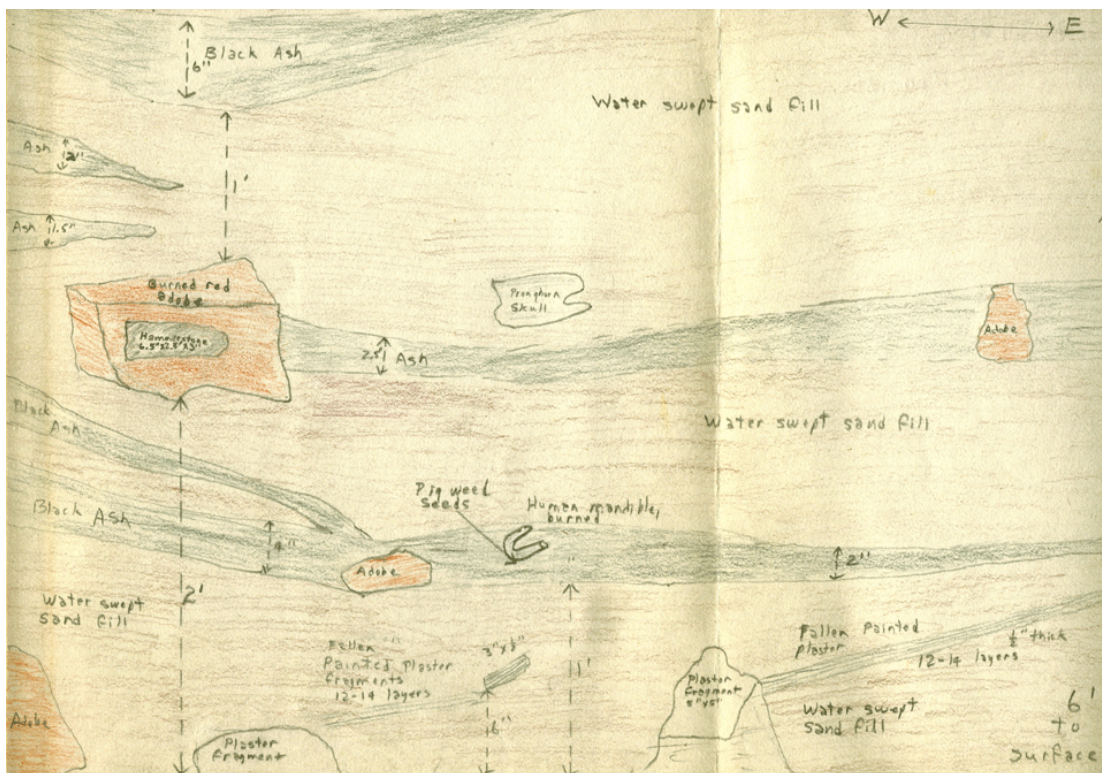 W E
6"
Black Ash
Water swept sand fill
Ash 2"
1'
Ash 1.5"
Burned red
Adobe
Pronghorn
Skull
Hammerstone
Adobe
2.5" Ash
Black
Ash
Water swept sand fill
Pig weed
Seeds
Human mandible,
burned
Black Ash
4"
2"
Adobe
2'
Water swept
sand fill
Fallen
Painted Plaster
fragments
12-14 layers
1'
Fallen Painted
plaster
1/2" thick
12-14 layers
Plaster
fragment
Adobe
6"
Water swept
sand fill
6'
to
surface
Plaster
fragment